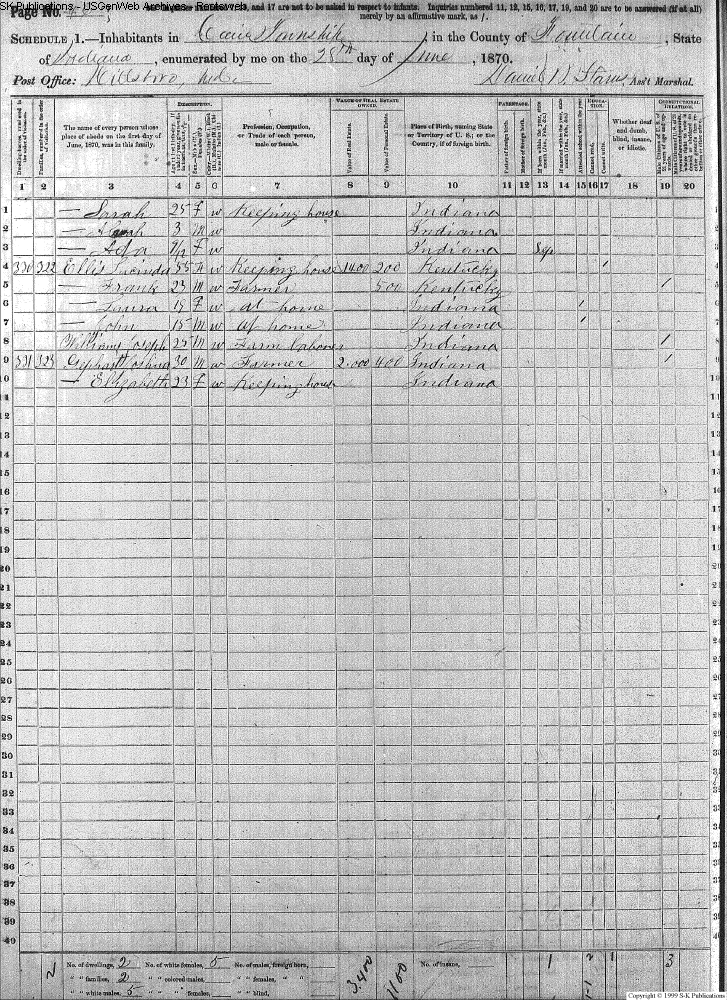 SK Publications - USGenWeb Archives - Rootsweb
Page No. and 17 are not to be asked in respect to infants. Inquiries numbered 11, 12, 15, 16, 17, 19, and 20 are to be answered (if at all)
merely by an affirmative mark, as /.
SCHEDULE 1.—Inhabitants in Township, in the County of Fountain, State
of Indiana, enumerated by me on the 28th day of June, 1870.
Post Office: Hillsboro Ass't Marshal.
DESCRIPTION. VALUE OF REAL ESTATE OWNED. PARENTAGE. EDUCATION. CONSTITUTIONAL RELATIONS.
The name of every person whose place of abode on the first day of June, 1870, was in this family.
Profession, Occupation, or Trade of each person, male or female.
Value of Real Estate.
Value of Personal Estate.
Place of Birth, naming State or Territory of U. S.; or the Country, if of foreign birth.
Father of foreign birth.
Mother of foreign birth.
Attended school within the year.
Cannot read.
Cannot write.
Whether deaf and dumb, blind, insane, or idiotic.
1 2 3 4 5 6 7 8 9 10 11 12 13 14 15 16 17 18 19 20
1 — Sarah 25 F w Keeping house Indiana
2 — 3 M w Indiana
3 — F w Indiana
4 320 322 Ellis 55 w Keeping house 1400 200 Kentucky /
5 — Frank 23 M w Farmer 500 Kentucky /
6 — Louisa F w at home Indiana /
7 — John 15 M w at home Indiana /
8 Williams Joseph 25 M w Farm laborer Indiana /
9 321 323 Gephart 30 M w Farmer 2,000 400 Indiana /
10 — Elizabeth 23 F w Keeping house Indiana
11
12
13
14
15
16
17
18
19
20
21
22
23
24
25
26
27
28
29
30
31
32
33
34
35
36
37
38
39
40
2 No. of dwellings, 2 No. of white females, 5 No. of males, foreign born, 3,400 1100 No. of insane, 1 2 1 3
" " families, 2 " " colored males, " " females, " "
" " white males, 5 " " females, " " blind,
Copyright © 1999 S-K Publications